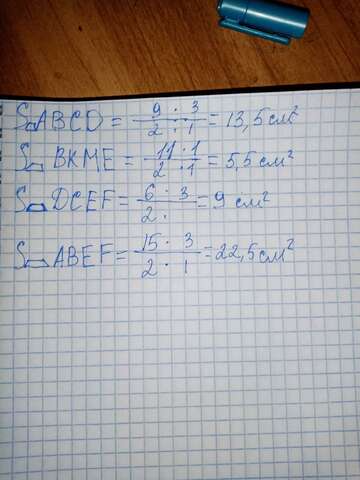 S▱ABCD = 9 · 3 / 2 · 1 = 13,5 см²
S▱BKME = 11 · 1 / 2 · 1 = 5,5 см²
S▱DCEF = 6 · 3 / 2 · = 9 см²
S▱ABEF = 15 · 3 / 2 · 1 = 22,5 см²